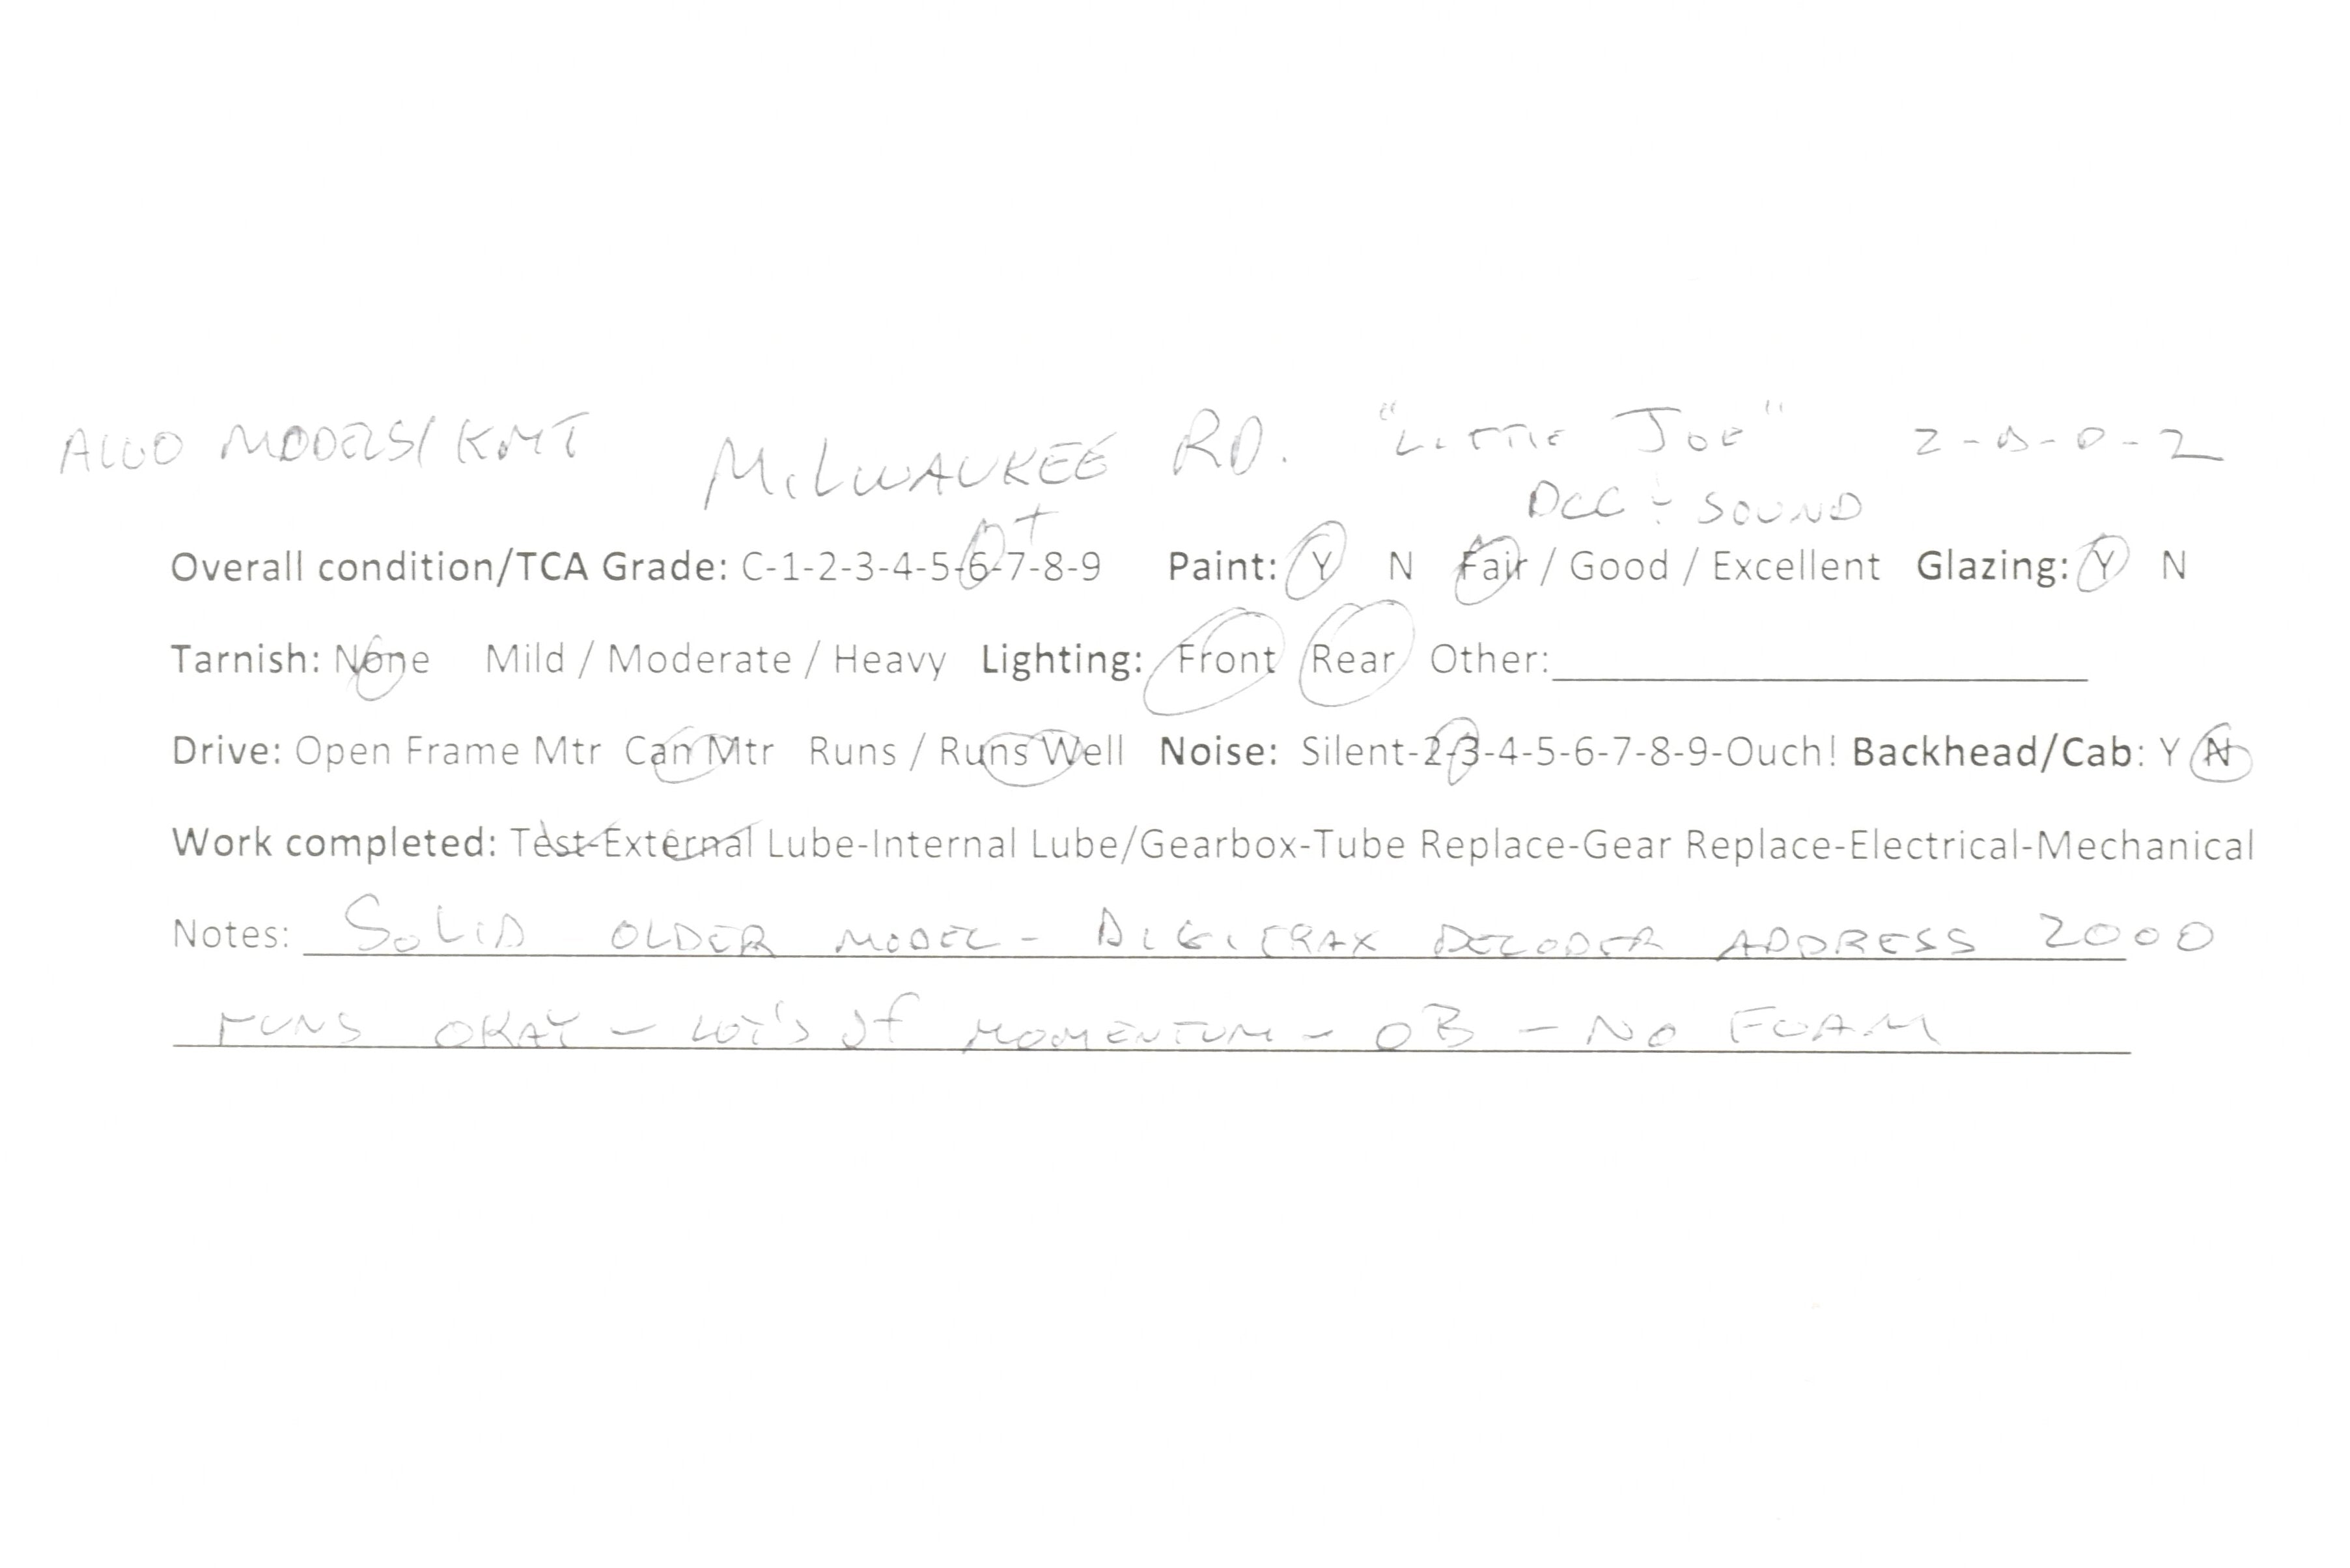 ALCO MODELS/KMT MILWAUKEE RD. "LITTLE JOE" 2-D-D-2
DCC & SOUND
+
Overall condition/TCA Grade: C-1-2-3-4-5-6-7-8-9 Paint: Y N Fair / Good / Excellent Glazing: Y N
Tarnish: None Mild / Moderate / Heavy Lighting: Front Rear Other:
Drive: Open Frame Mtr Can Mtr Runs / Runs Well Noise: Silent-2-3-4-5-6-7-8-9-Ouch! Backhead/Cab: Y N
Work completed: Test-External Lube-Internal Lube/Gearbox-Tube Replace-Gear Replace-Electrical-Mechanical
Notes: SOLID OLDER MODEL - DIGITRAX DECODER ADDRESS 2000
RUNS OKAY - LOT'S OF MOMENTUM - OB - NO FOAM